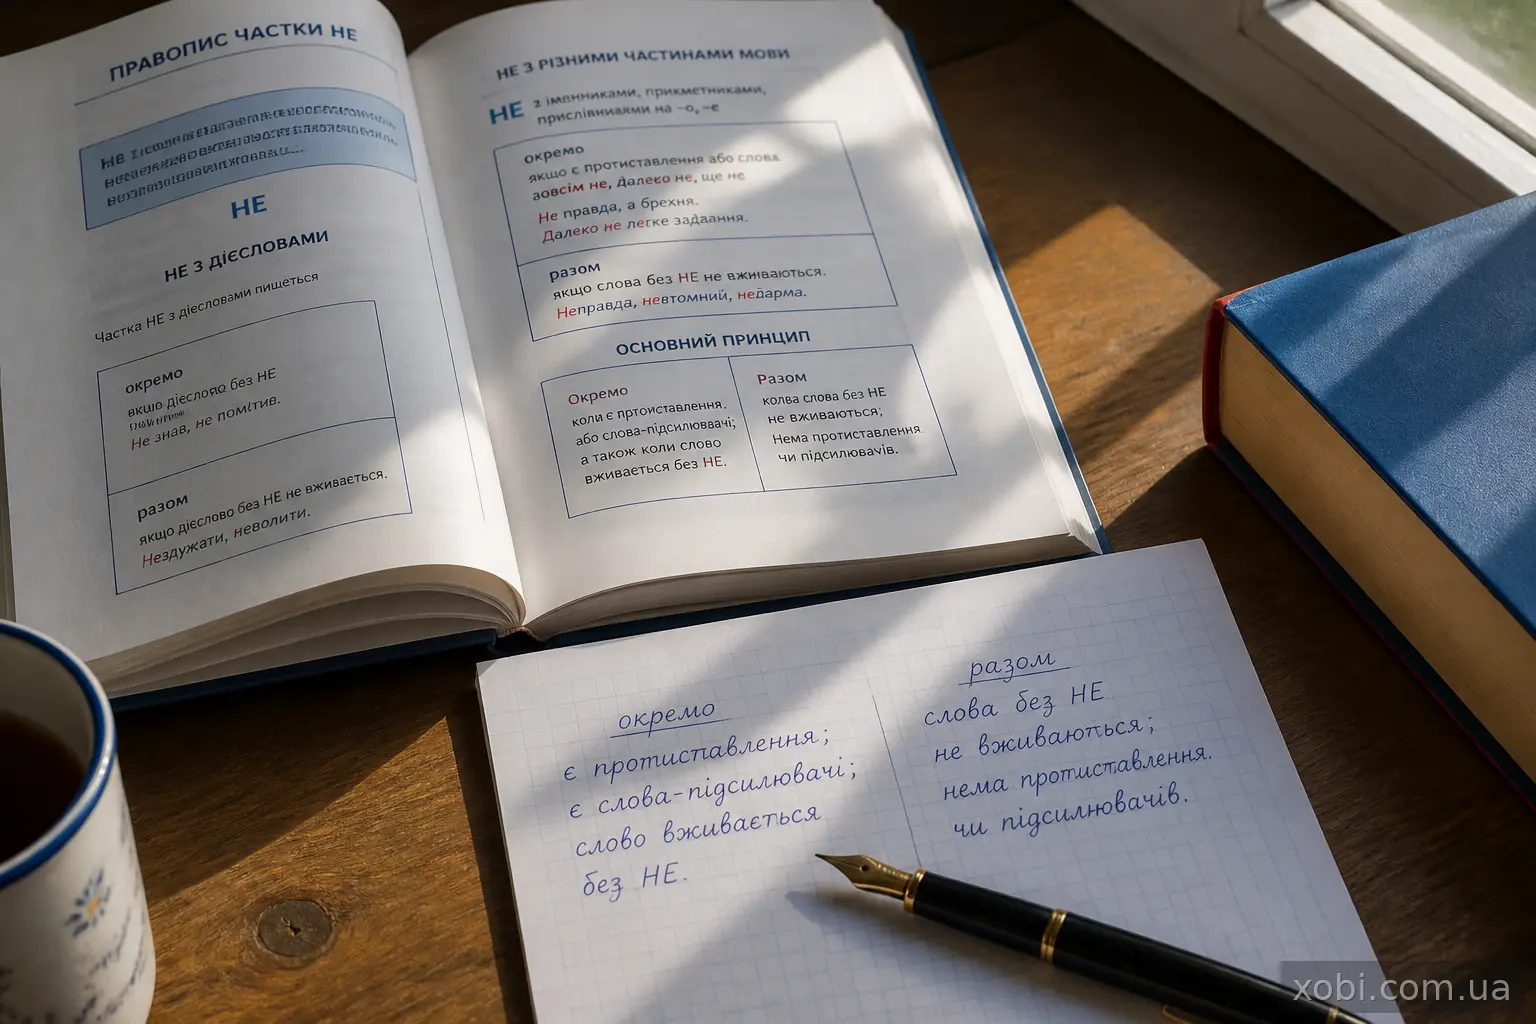 ПРАВОПИС ЧАСТКИ НЕ
НЕ
НЕ
НЕ З ДІЄСЛОВАМИ
Частка НЕ з дієсловами пишеться
окремо
якшо дієслово без НЕ
Не знав, не помітив.
разом
якщо дієслово без НЕ не вживається.
Нездужати, неволити.
НЕ З РІЗНИМИ ЧАСТИНАМИ МОВИ
НЕ з іменниками, прикметниками,
прислівниками на –о, –е
окремо
якшо є протиставлення або слова
зовсім не, далеко не, ще не
Не правда, а брехня.
Далеко не легке задаання.
разом
якщо слова без НЕ не вживаються.
Неправда, невтомний, недарма.
ОСНОВНИЙ ПРИНЦИП
Окремо
коли є пртоиставлення.
або слова-підсилюввачі;
а також коли слово
вживається без НЕ.
Разом
колва слова без НЕ
не вживаються;
Нема протиставлення
чи підсилювачів.
окремо
є протиставлення;
є слова-підсилювачі;
слово вживається
без НЕ.
разом
слова без НЕ
не вживаються;
нема протиставлення.
чи підсилнювачів.
xobi.com.ua